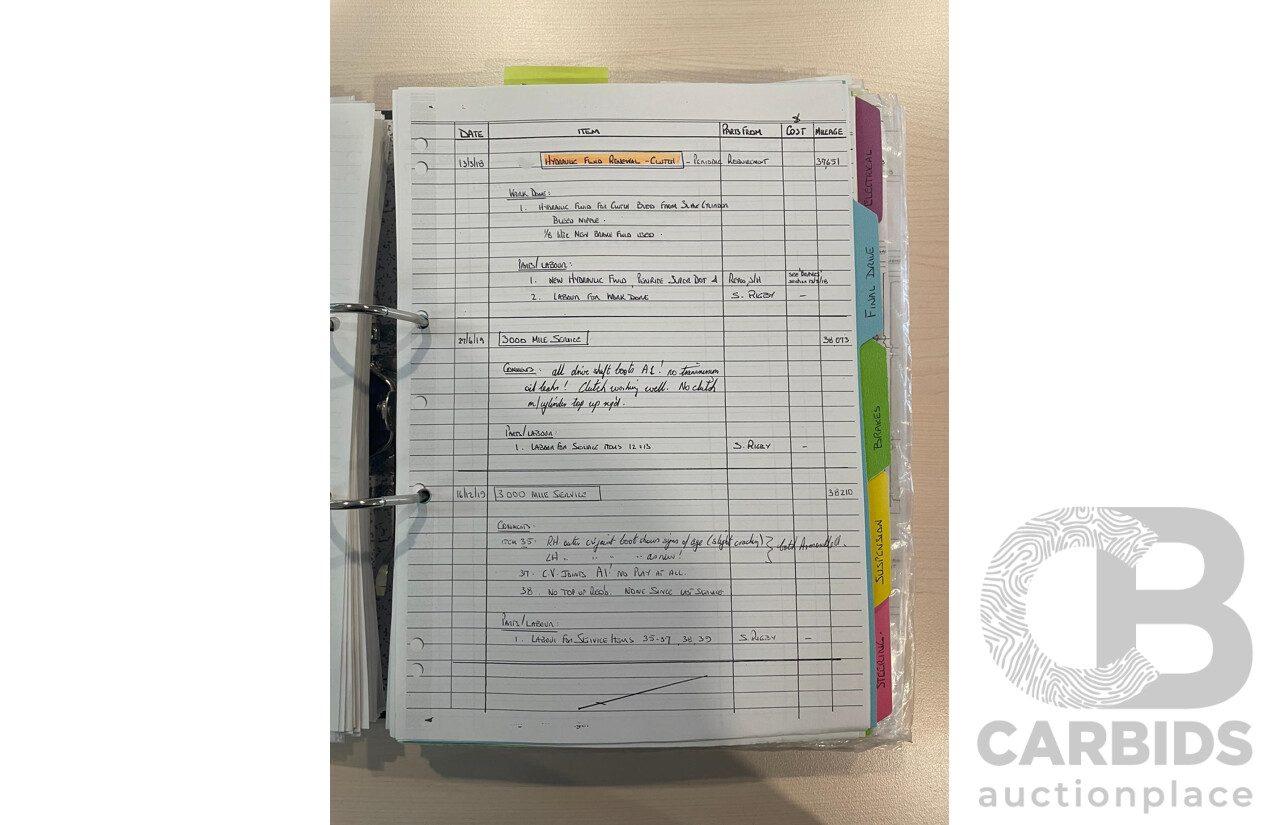 DATE ITEM PARTS FROM $ COST MILEAGE
13/3/18 HYDRAULIC FLUID RENEWAL - CLUTCH - PERIODIC REQUIREMENT 37,651
WORK DONE:
1. HYDRAULIC FLUID FOR CLUTCH BLED FROM SLAVE CYLINDER
BLEED NIPPLE.
1/8 litre NEW BRAKE FLUID USED.
PARTS/LABOUR:
1. NEW HYDRAULIC FLUID, PENRITE SUPER DOT 4 REPCO, S/H SEE 'BRAKES'
2. LABOUR FOR WORK DONE S. RIGBY -
27/6/19 3000 MILE SERVICE 38 073
COMMENTS: all drive shaft boots A1! no transmission
oil leaks! Clutch working well. No clutch
m/cylinder top up reqd.
PARTS/LABOUR
1. LABOUR FOR SERVICE ITEMS S. RIGBY -
16/12/19 3000 MILE SERVICE 38210
COMMENTS:
ITEM 35: RH outer CV joint boot shows signs of age (slight cracking)
LH " " - " as new!
37. C.V. JOINTS A1! NO PLAY AT ALL
38 NO TOP UP REQD. NONE SINCE LAST SERVICE
PARTS/LABOUR:
1. LABOUR FOR SERVICE ITEMS 35-37, 38, 39 S. RIGBY -
ELECTRICAL
FINAL DRIVE
BRAKES
SUSPENSION
STEERING.
CB
CARBIDS
auctionplace